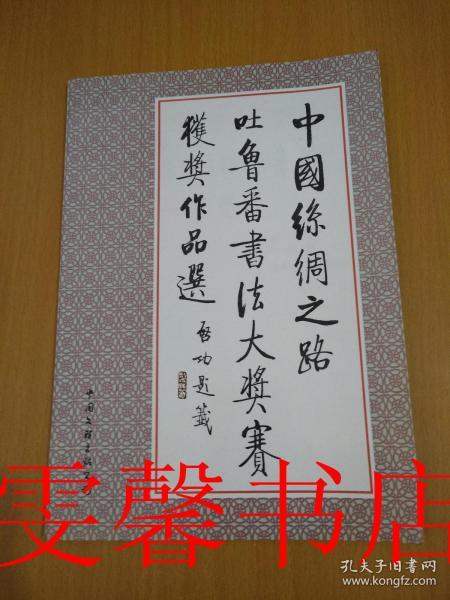 中國絲綢之路
吐魯番書法大奬賽
獲奬作品選
啟功題籤
雯馨书店
孔夫子旧书网
www.kongfz.com